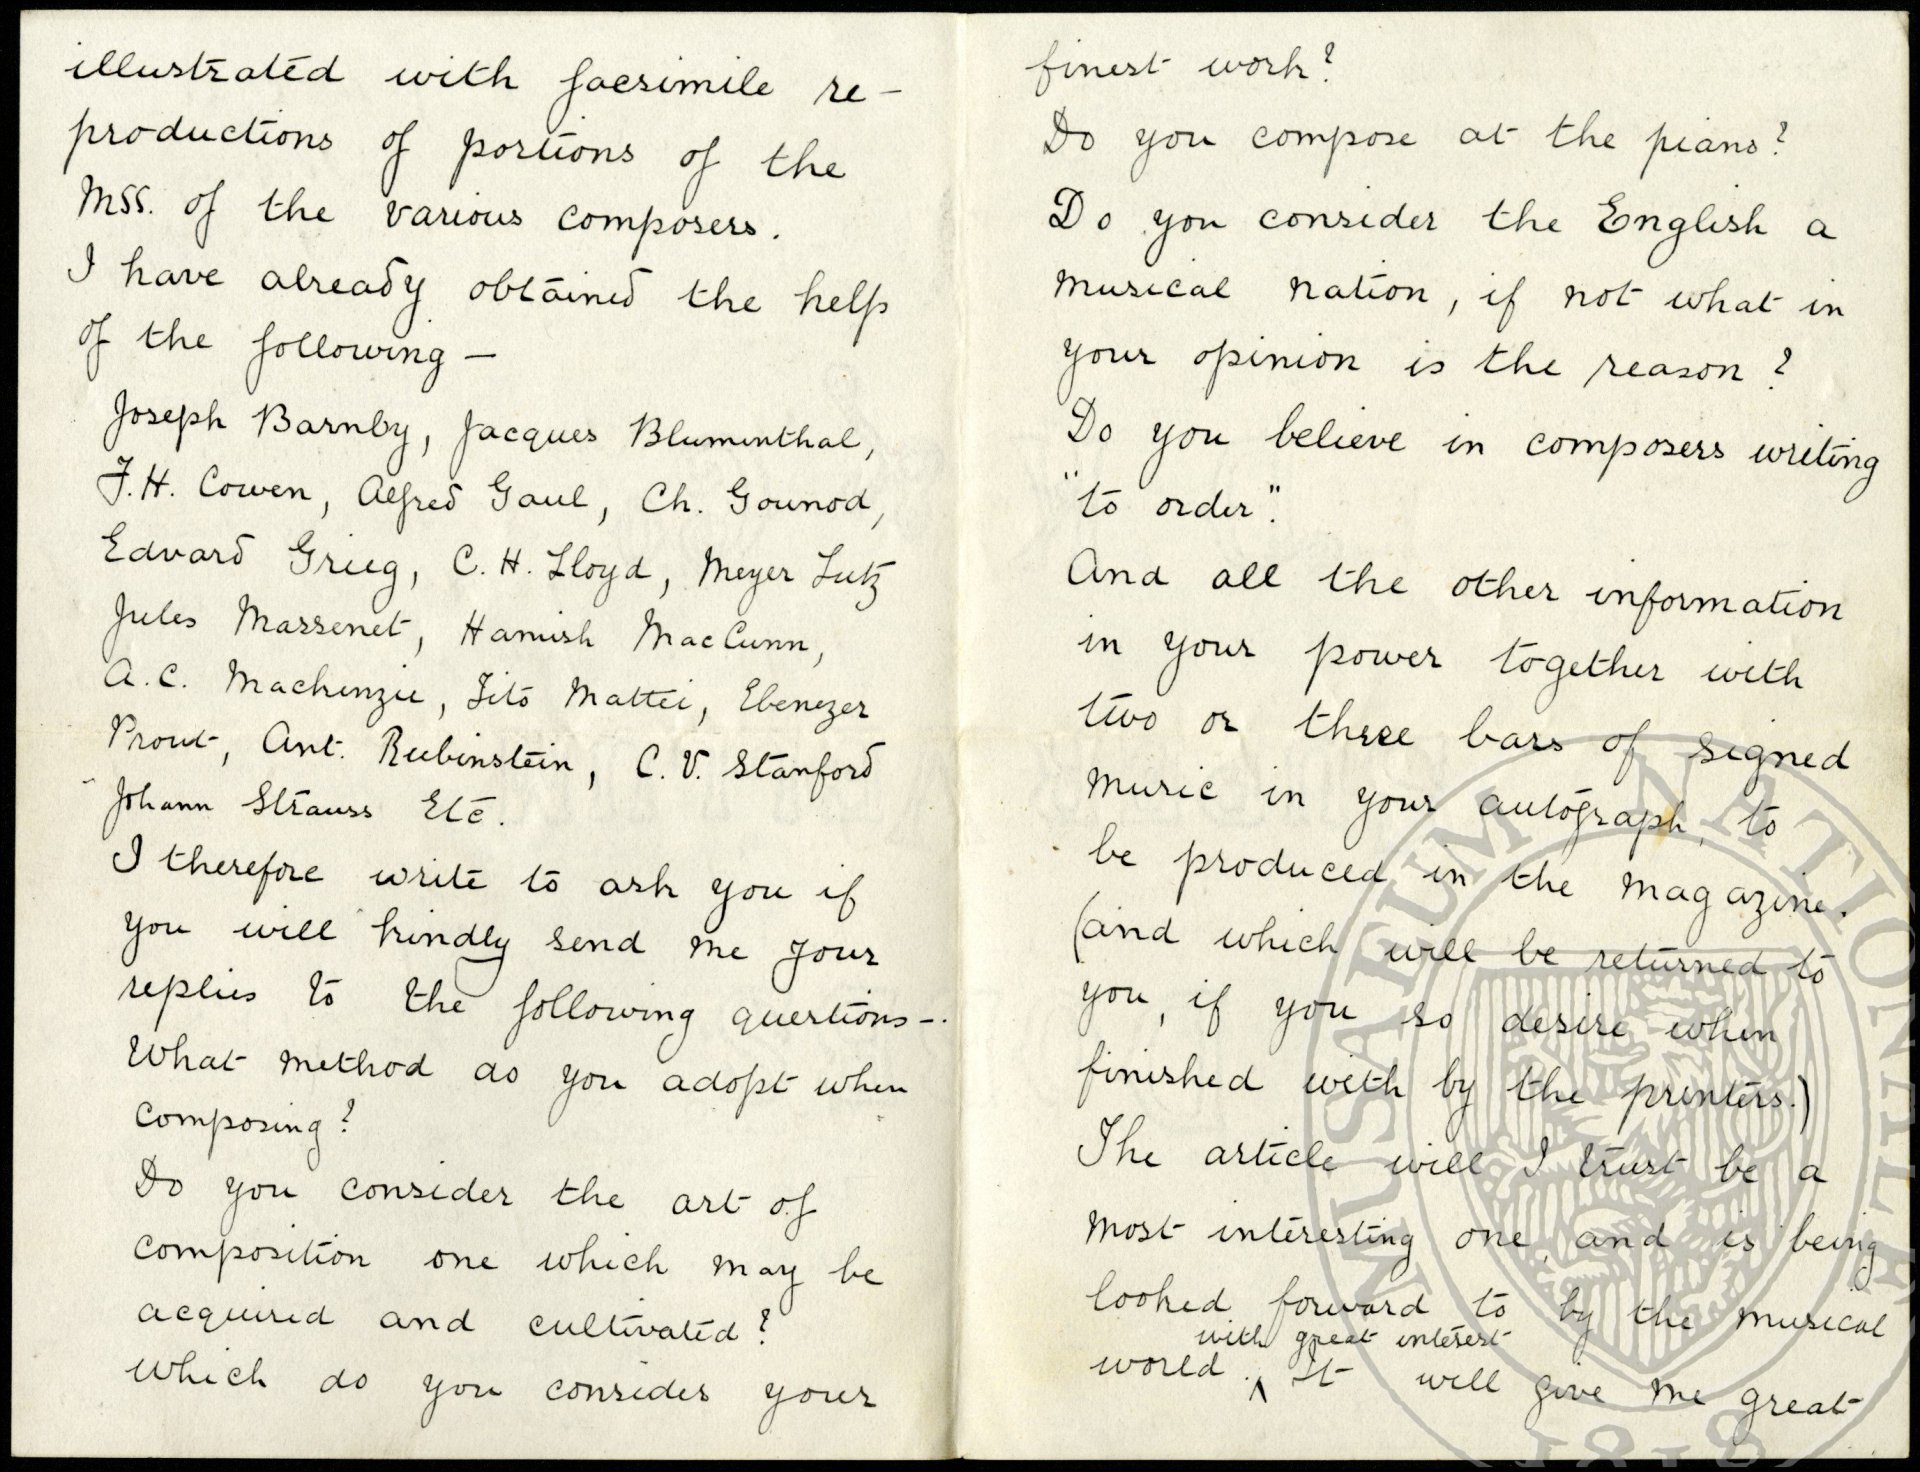 illustrated with facsimile re-
productions of portions of the
MSS. of the various composers.
I have already obtained the help
of the following —
Joseph Barnby, Jacques Blumenthal,
F.H. Cowen, Alfred Gaul, Ch. Gounod,
Edvard Grieg, C. H. Lloyd, Meyer Lutz
Jules Massenet, Hamish MacCunn,
A.C. Mackenzie, Tito Mattei, Ebenezer
Prout, Ant. Rubinstein, C. V. Stanford
Johann Strauss Etc.
I therefore write to ask you if
you will kindly send me your
replies to the following questions—.
What method do you adopt when
composing?
Do you consider the art of
composition one which may be
acquired and cultivated?
Which do you consider your
finest work?
Do you compose at the piano?
Do you consider the English a
musical nation, if not what in
your opinion is the reason?
Do you believe in composers writing
"to order".
And all the other information
in your power together with
two or three bars of signed
music in your autograph, to
be produced in the magazine.
(and which will be returned to
you, if you so desire when
finished with by the printers.)
The article will I trust be a
most interesting one, and is being
looked forward to by the musical
with great interest
world. ^ It will give me great
MUSAEUM NATIONALE
1818